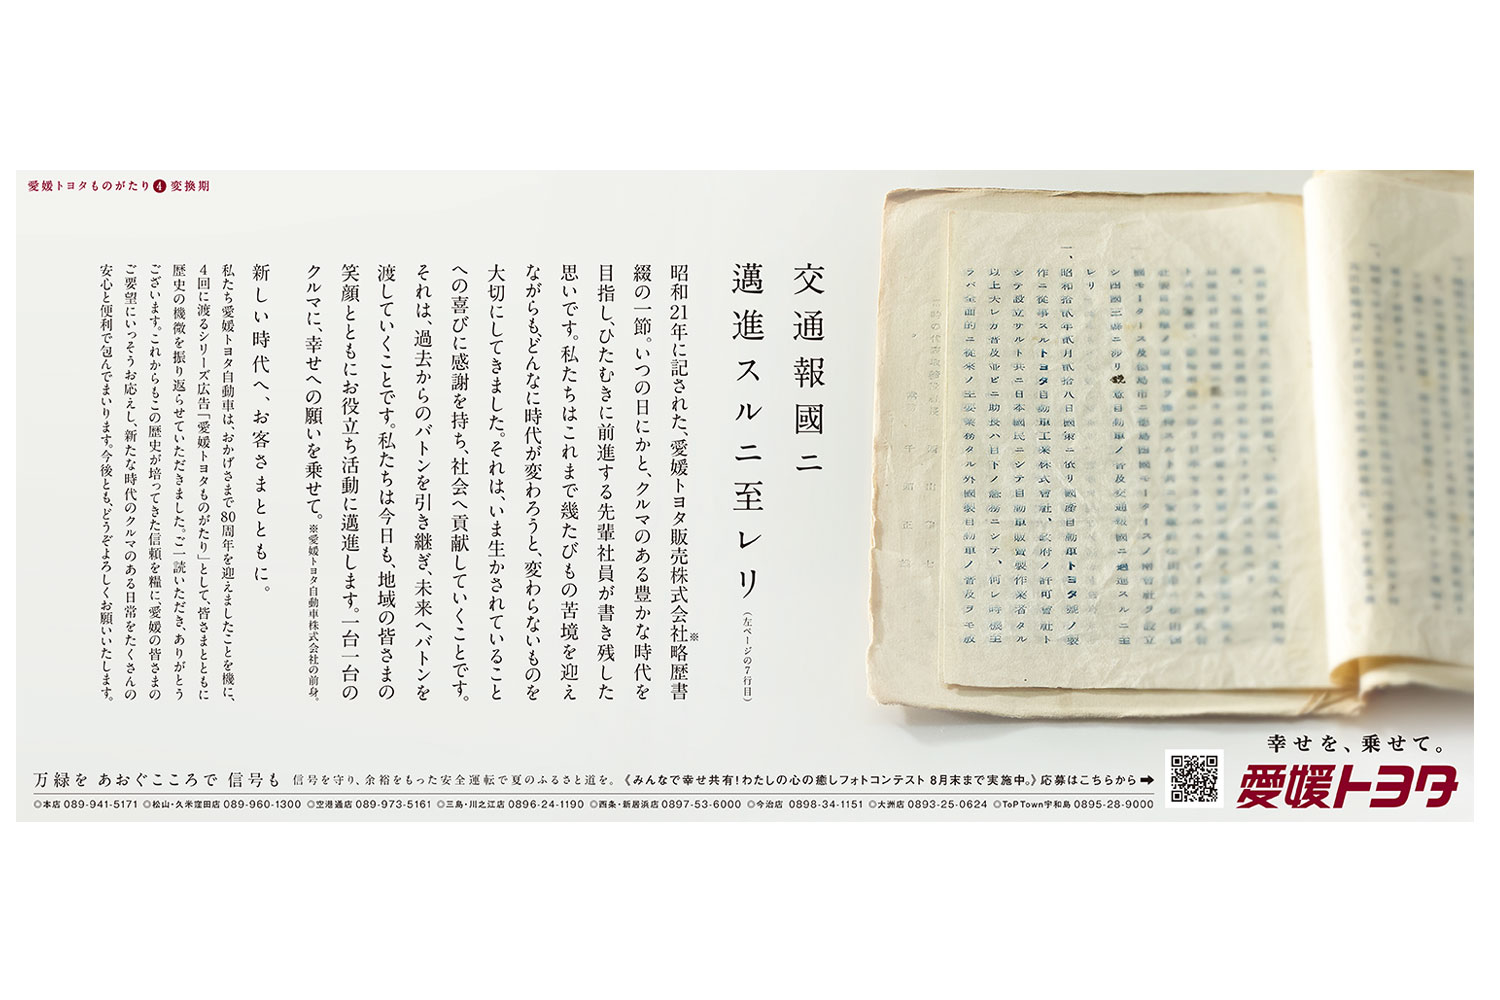 愛媛トヨタものがたり❹変換期
交通報國ニ
邁進スルニ至レリ(左ページの7行目)
昭和21年に記された、愛媛トヨタ販売株式会社※略歴書
綴の一節。いつの日にかと、クルマのある豊かな時代を
目指し、ひたむきに前進する先輩社員が書き残した
思いです。私たちはこれまで幾たびもの苦境を迎え
ながらも、どんなに時代が変わろうと、変わらないものを
大切にしてきました。それは、いま生かされていること
への喜びに感謝を持ち、社会へ貢献していくことです。
それは、過去からのバトンを引き継ぎ、未来へバトンを
渡していくことです。私たちは今日も、地域の皆さまの
笑顔とともにお役立ち活動に邁進します。一台一台の
クルマに、幸せへの願いを乗せて。※愛媛トヨタ自動車株式会社の前身。
新しい時代へ、お客さまとともに。
私たち愛媛トヨタ自動車は、おかげさまで80周年を迎えましたことを機に、
4回に渡るシリーズ広告「愛媛トヨタものがたり」として、皆さまとともに
歴史の機微を振り返らせていただきました。ご一読いただき、ありがとう
ございます。これからもこの歴史が培ってきた信頼を糧に、愛媛の皆さまの
ご要望にいっそうお応えし、新たな時代のクルマのある日常をたくさんの
安心と便利で包んでまいります。今後とも、どうぞよろしくお願いいたします。
シ四國三縣ニ渉リ鋭意自動車ノ普及交通報國ニ邁進スルニ至
レリ
一、昭和拾貳年貳月貳拾八日國策ニ依リ國産自動車トヨタ號ノ製
作ニ從事スルトヨタ自動車工業株式會社、政府ノ許可會社ト
シテ設立サルト共ニ日本國民ニシテ自動車販賣製作業者タル
以上大レカ普及並ビニ助長ハ目下ノ急務ニシテ、何レ時機至
ラバ全面的ニ從來ノ主要業務タル外國製自動車ノ普及ヲモ放
幸せを、乗せて。
愛媛トヨタ
万緑を あおぐこころで 信号も 信号を守り、余裕をもった安全運転で夏のふるさと道を。《みんなで幸せ共有！わたしの心の癒しフォトコンテスト 8月末まで実施中。》応募はこちらから➡
◎本店 089-941-5171 ◎松山・久米窪田店 089-960-1300 ◎空港通店 089-973-5161 ◎三島・川之江店 0896-24-1190 ◎西条・新居浜店 0897-53-6000 ◎今治店 0898-34-1151 ◎大洲店 0893-25-0624 ◎ToP Town宇和島 0895-28-9000